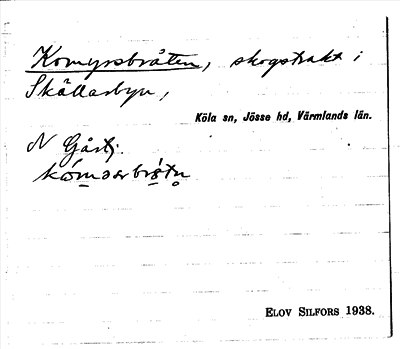 Komyrsbråten, skogstrakt i
Skällarbyn,
Köla sn, Jösse hd, Värmlands län.
N Gårdsj.
ELOV SILFORS 1938.